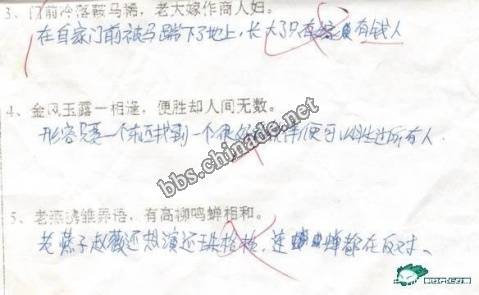 3、门前冷落鞍马稀，老大嫁作商人妇。
在自家门前被马踹下了地上，长大了只有 有钱人
4、金风玉露一相逢，便胜却人间无数。
形容只要一个东西找到一个 便可以 过所有人
bbs.chinade.net
5、老燕携雏弄语，有高柳鸣蝉相和。
老燕子赵薇还想演还珠格格，连 蝉都在反对、